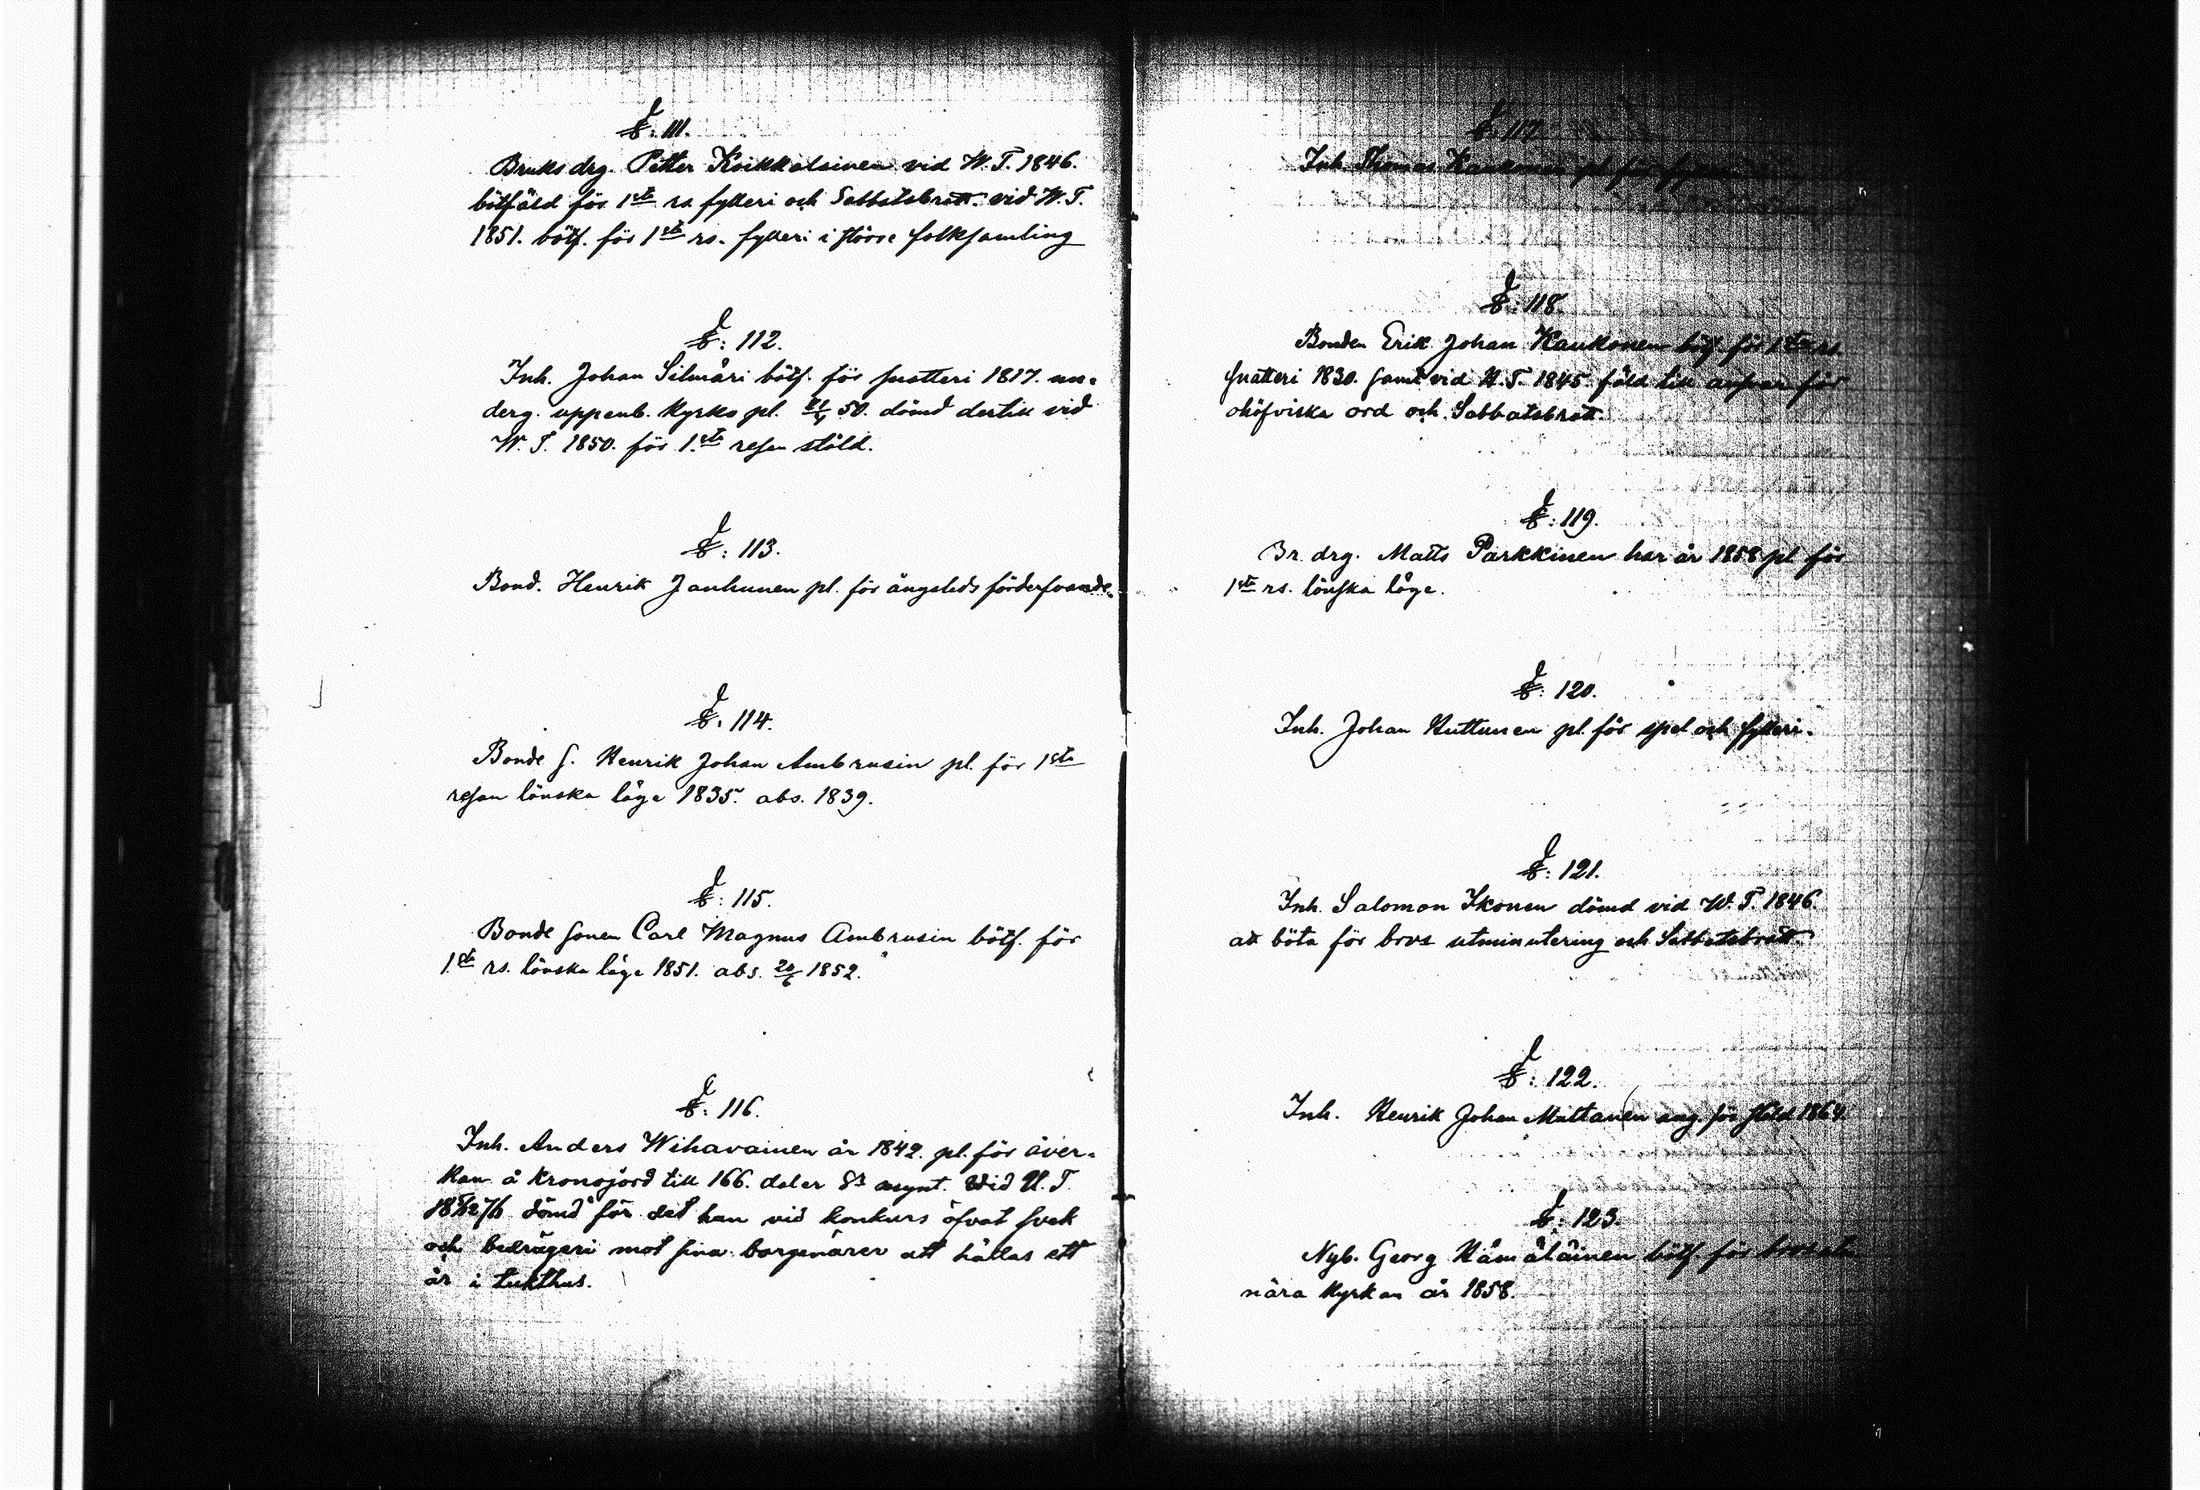 §. 111.
Bruks drg. Petter Koikkalainen vid W. T. 1846.
bötfäld för 1sta rs fylleri och Sabbatsbrott. vid W. T.
1851. bötf. för 1sta rs. fylleri i större folksamling
§: 112.
Inh. Johan Silmäri bötf. för snatteri 1817. un-
derg. uppenb. kyrko pl. 21/4 50. dömd dertill vid
W. T. 1850. för 1.sta resan stöld.
§: 113.
Bond. Henrik Janhunen pl. för ängsleds förderfvande.
§. 114.
Bonde s. Henrik Johan Ambrusin pl. för 1sta
resan lönska läge 1835. abs. 1839.
§: 115.
Bonde sonen Carl Magnus Ambrusin bötf. för
1.sta rs. lönska läge 1851. abs. 20/6 1852.
§: 116.
Inh. Anders Wihavainen år 1842. pl. för åver-
kan å kronojord till 166. daler Sr mynt. Vid U. T.
dömd för det han vid konkurs öfvat svek
och bedrägeri mot sina borgenärer att hållas ett
år i tukthus.
§. 117.
Inh. Thomas Kaukonen pl. för
§: 118.
Bonden Erik Johan Kaukonen bötf. för 1sta rs.
snatteri 1830. samt vid U. T. 1845. fäld till ansvar för
ohöfviska ord och Sabbatsbrott.
§: 119.
Br. drg. Matts Parkkinen har år 1858 pl. för
1sta rs. lönska läge.
§: 120.
Inh. Johan Huttunen pl. för spel och fylleri.
§: 121.
Inh. Salomon Ikonen dömd vid W. T. 1846.
att böta för brvs utminutering och Sabbatsbrott.
§: 122.
Inh. Henrik Johan Muttanen ang. för stöld 1864.
§: 123.
Nyb. Georg Hämäläinen bötf. för
nära kyrkan år 1858.